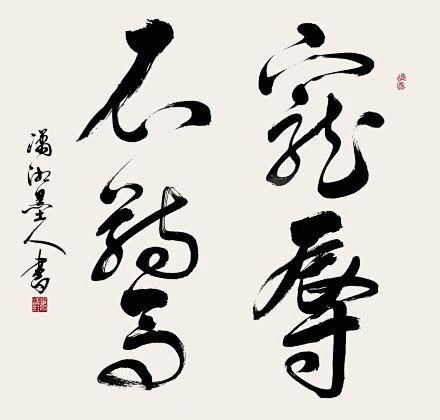 寵辱
不驚
瀟湘墨人書